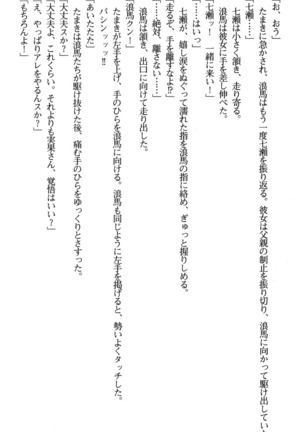 「お、おう」
　たまきに急かされ、浪馬はもう一度七瀬を振り返る。彼女は父親の制止を振り切り、浪馬に向かって駆け出してい
「七瀬……」
　七瀬は小さく頷き、走り寄る。
　浪馬は彼女に手を差し伸べた。
「七瀬ッ！　一緒に来い！」
「……はいっ」
　七瀬が、嬉し涙をぬぐって濡れた指を浪馬の指に絡め、ぎゅっと握りしめる。
「走るぞ、手を離すなよ」
「……絶対、離さない……」
　浪馬は頷き、出口に向けて走り出した。
「浪馬クン！」
　たまきが左手を上げ、手のひらを浪馬に向ける。浪馬も同じように左手を掲げると、勢いよくタッチした。
　パシンッッッ!!
「あいたたた」
　たまきは浪馬たちが駆け抜けた後、痛む手のひらをゆっくりとさすった。
「大丈夫スか？」
「大丈夫よ、これくらい。それよりも実果さん、覚悟はいい？」
「え、やっぱりアレをやるんスか？」
「もちろんよー」